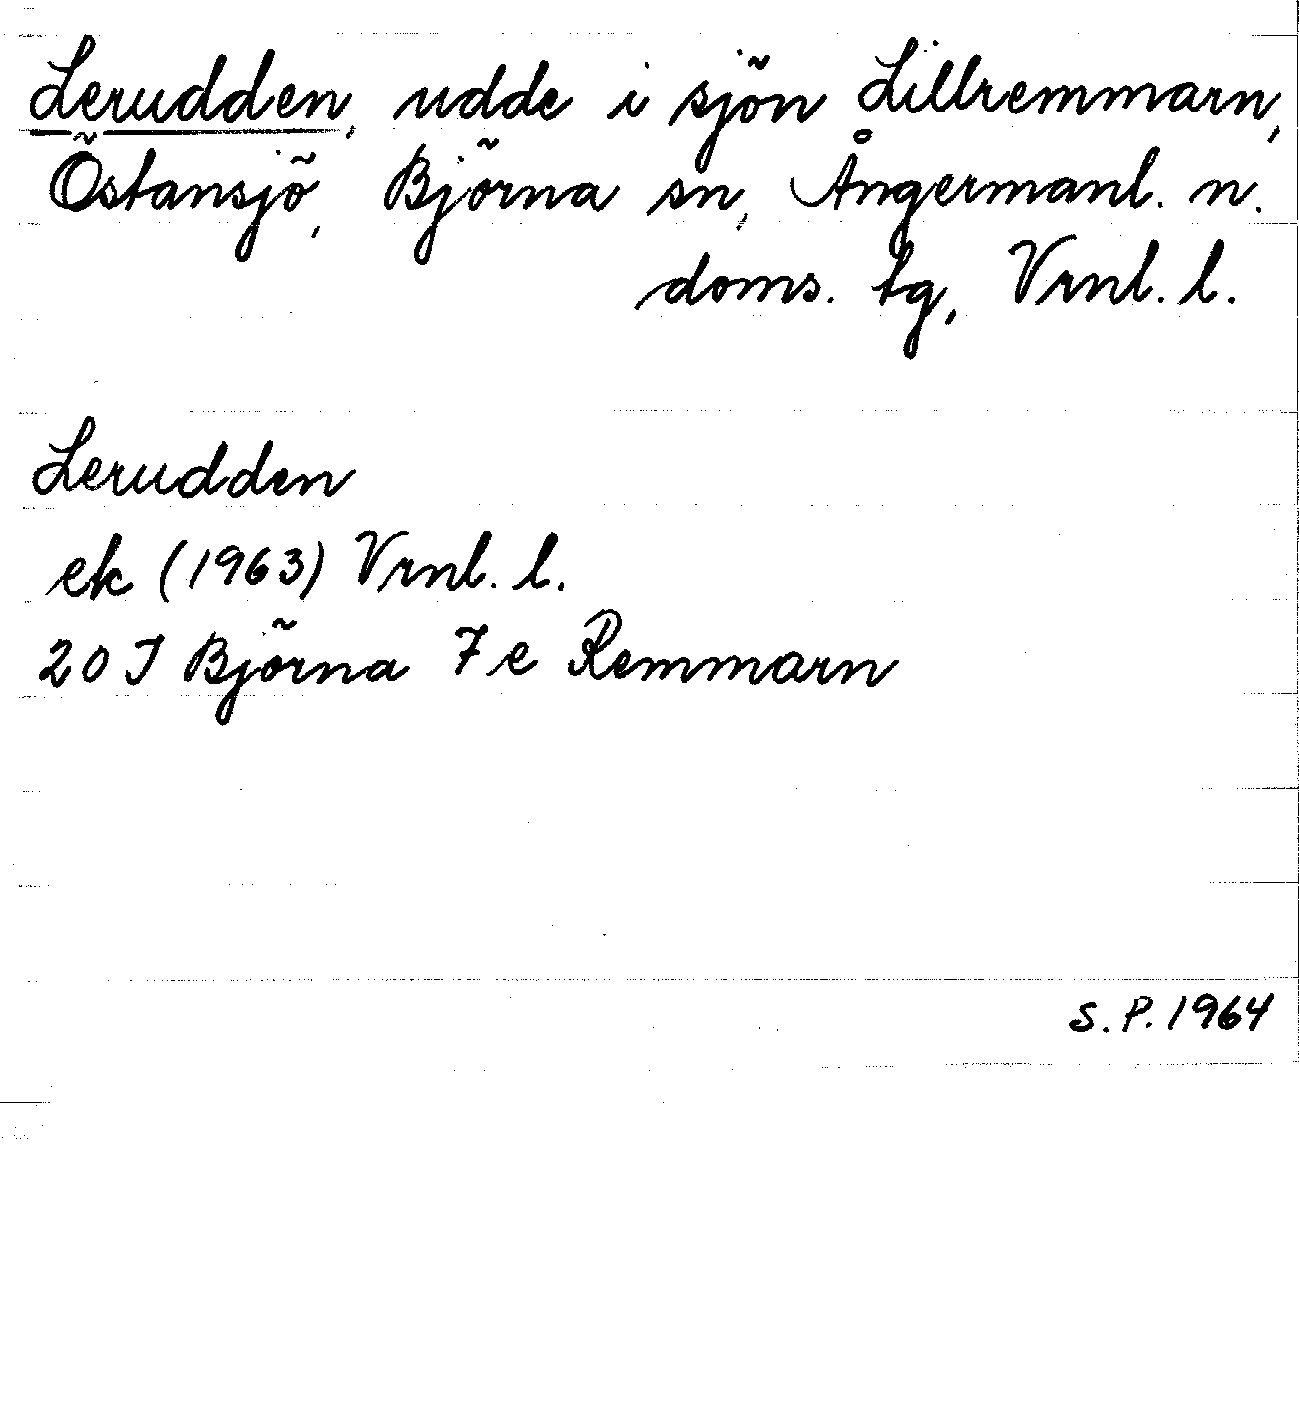 Lerudden, udde i sjön Lillremmarn,
Östansjö, Björna sn, Ångermanl. n.
doms. tg, Vrnl. l.
Lerudden
ek (1963) Vrnl. l.
20 J Björna 7 e Remmarn
S. P. 1964